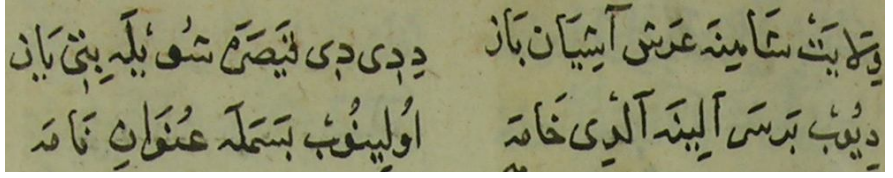 وِلَايَتْ شَامِينَه عَرش آشِيَان بَاز دِدِى دِى قَيصَرَه شُويْلَه بِنِى يَاز
دِيُوبْ بَرسَى اَلِينَه آلدِى خَامَه اُولِينُوبْ بَسمَلَه عُنوَانِ نَامَه